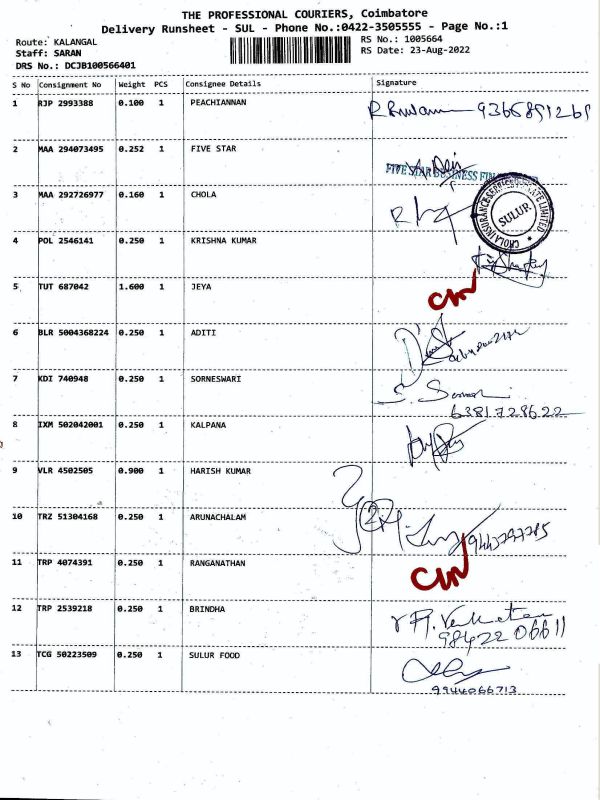 THE PROFESSIONAL COURIERS, Coimbatore
Delivery Runsheet - SUL - Phone No.:0422-3505555 - Page No.:1
Route: KALANGAL
Staff: SARAN
DRS No.: DCJB100566401
RS No.: 1005664
RS Date: 23-Aug-2022
S No Consignment No Weight PCS Consignee Details Signature
1 RJP 2993388 0.100 1 PEACHIANNAN
2 MAA 294073495 0.252 1 FIVE STAR
FIVE STAR BUSINESS
3 MAA 292726977 0.160 1 CHOLA
CHOLA INSURANCE SERVICES PRIVATE LIMITED
SULUR
4 POL 2546141 0.250 1 KRISHNA KUMAR
5 TUT 687042 1.600 1 JEYA
6 BLR 5004368224 0.250 1 ADITI
7 KDI 740948 0.250 1 SORNESWARI
6381728622
8 IXM 502042001 0.250 1 KALPANA
9 VLR 4502505 0.900 1 HARISH KUMAR
10 TRZ 51304168 0.250 1 ARUNACHALAM
11 TRP 4074391 0.250 1 RANGANATHAN
12 TRP 2539218 0.250 1 BRINDHA
98422 06611
13 TCG 50223509 0.250 1 SULUR FOOD
9944066713